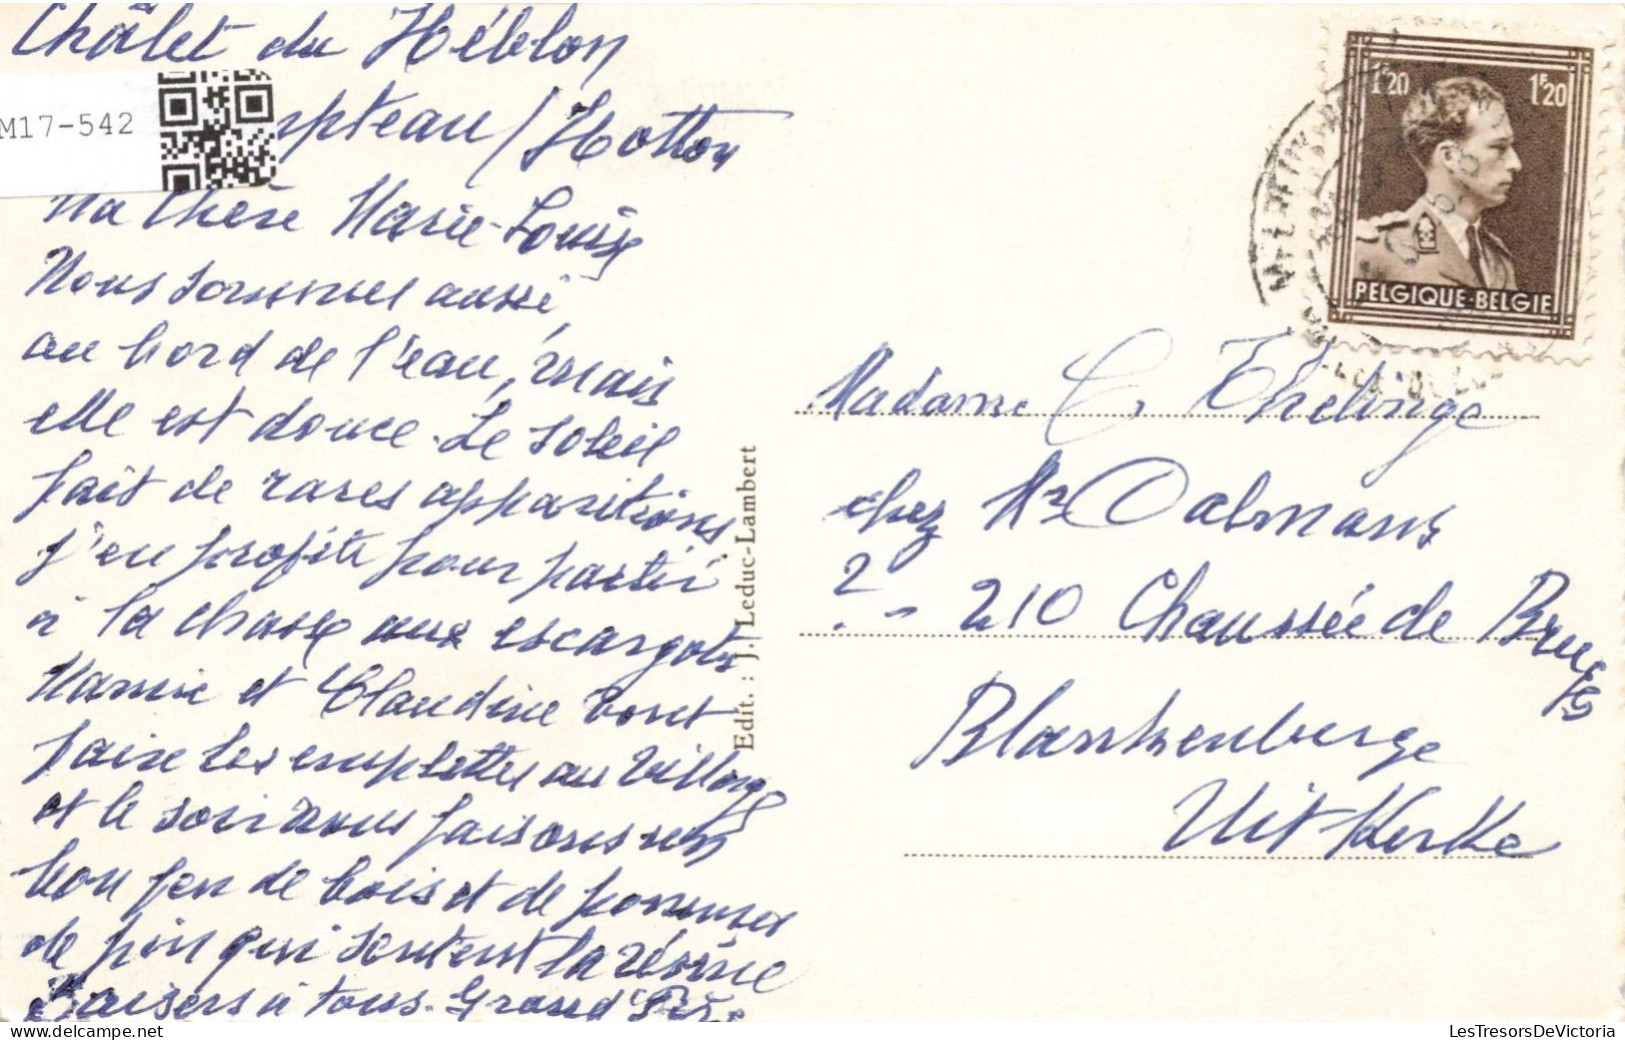 Châlet du Héblon
M17-542
mpteau / Hotton
Ma Chère Marie-Louise
Nous sommes aussi
au bord de l'eau, mais
elle est douce. Le soleil
fait de rares apparitions
j'en profite pour partir
à la chasse aux escargots
Mamie et Claudine vont
faire les emplettes au village
et le soir nous faisons un
bon feu de bois et de pommes
de pin qui sentent la résine
Baisers à tous. Grand Père
Edit. : J. Leduc-Lambert
1F20 1F20
BELGIQUE-BELGIE
Madame C. Thelinge
chez Mr Dalmans
? - 210 Chaussée de Bruges
Blankenberge
Uitkerke
LesTresorsDeVictoria